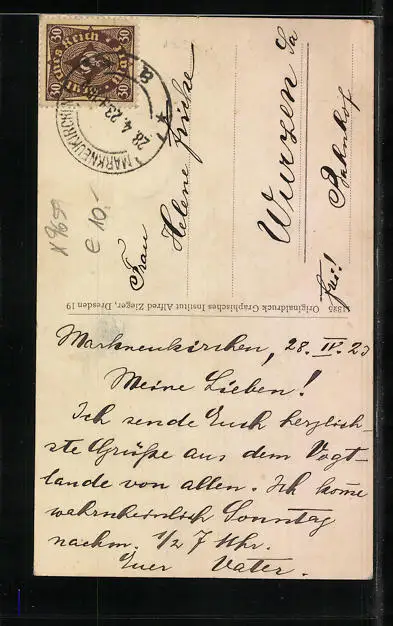 30 Deutsches Reich 30
30 30
MARKNEUKIRCHEN
28.4.23
a
Frau
Helene Fricke
Wurzen Sa
frei! Bahnhof
€ 10.-
11325 Originaldruck Graphisches Institut Alfred Zieger, Dresden 19
Markneukirchen, 28. IV. 23
Meine Lieben!
Ich sende Euch herzlich-
ste Grüße aus dem Vogt-
lande von allen. Ich kom̅e
wahrscheinlich Sonntag
nachm. 1/2 7 Uhr.
Euer Vater.